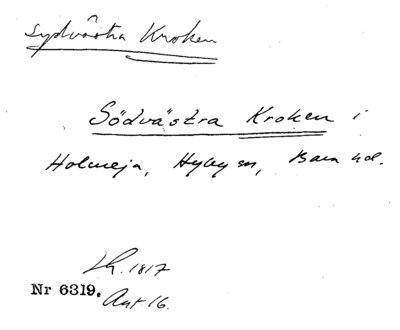 Sydvästra Kroken
Södvästra Kroken i
Holmeja, Hyby sn, Bara hd.
Lk. 1817
Nr 6319. Akt 16.